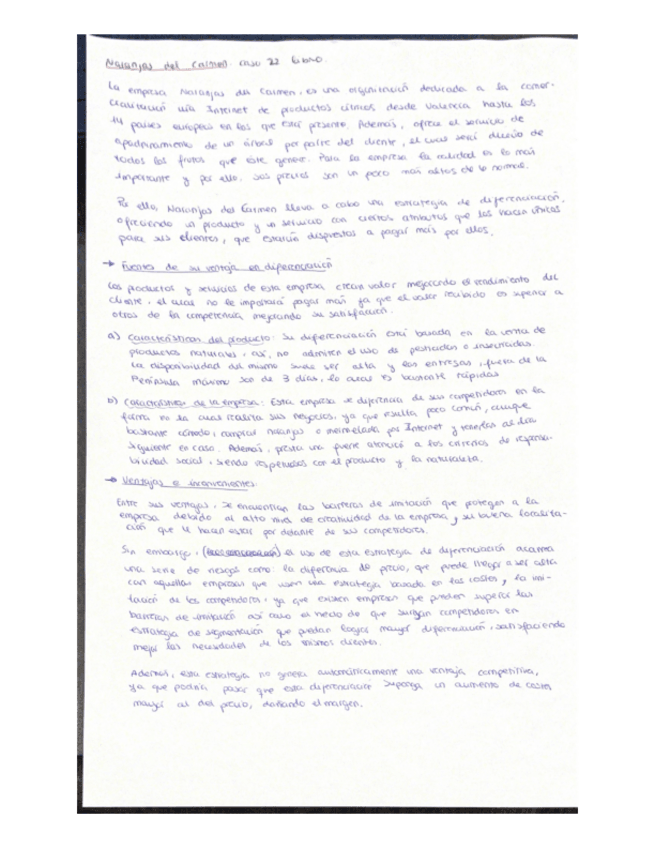 Naranjas del Carmen. caso 22 libro.
La empresa Naranjas del Carmen, es una organización dedicada a la comer-
cialización vía Internet de productos cítricos desde Valencia hasta los
14 países europeos en los que está presente. Además, ofrece el servicio de
apadrinamiento de un árbol por parte del cliente, el cual será dueño de
todos los frutos que éste genere. Para la empresa la calidad es lo más
importante y por ello, sus precios son un poco más altos de lo normal.
Por ello, Naranjas del Carmen lleva a cabo una estrategia de diferenciación,
ofreciendo un producto y un servicio con ciertos atributos que los hacen únicos
para sus clientes, que estarán dispuestos a pagar más por ellos.
→ Fuentes de su ventaja en diferenciación
Los productos y servicios de esta empresa crean valor mejorando el rendimiento del
cliente, el cual no le importará pagar más ya que el valor recibido es superior a
otros de la competencia mejorando su satisfacción.
a) Características del producto: Su diferenciación está basada en la venta de
productos naturales, así, no admiten el uso de pesticidas o insecticidas.
La disponibilidad del mismo suele ser alta y las entregas, fuera de la
Península máximo son de 3 días, lo cual es bastante rápidas
b) Características de la empresa: Esta empresa se diferencia de sus competidores en la
forma en la cual realiza sus negocios, ya que resulta poco común, aunque
bastante cómodo, comprar naranjas o mermelada por Internet y tenerlas al día
siguiente en casa. Además, presta una fuerte atención a los criterios de responsa-
bilidad social, siendo respetuosos con el producto y la naturaleza.
→ Ventajas e inconvenientes.
Entre sus ventajas, se encuentran las barreras de imitación que protegen a la
empresa debido al alto nivel de creatividad de la empresa y su buena localiza-
ción que le hacen estar por delante de sus competidores.
Sin embargo, el uso de esta estrategia de diferenciación acarrea
una serie de riesgos como: la diferencia de precio, que puede llegar a ser alta
con aquellas empresas que usen una estrategia basada en los costes, la imi-
tación de los competidores, ya que existen empresas que pueden superar las
barreras de imitación así como el hecho de que surjan competidores en
estrategia de segmentación que puedan lograr mayor diferenciación, satisfaciendo
mejor las necesidades de los mismos clientes.
Además, esta estrategia no genera automáticamente una ventaja competitiva,
ya que podría pasar que esta diferenciación suponga un aumento de costes
mayor al del precio, dañando el margen.